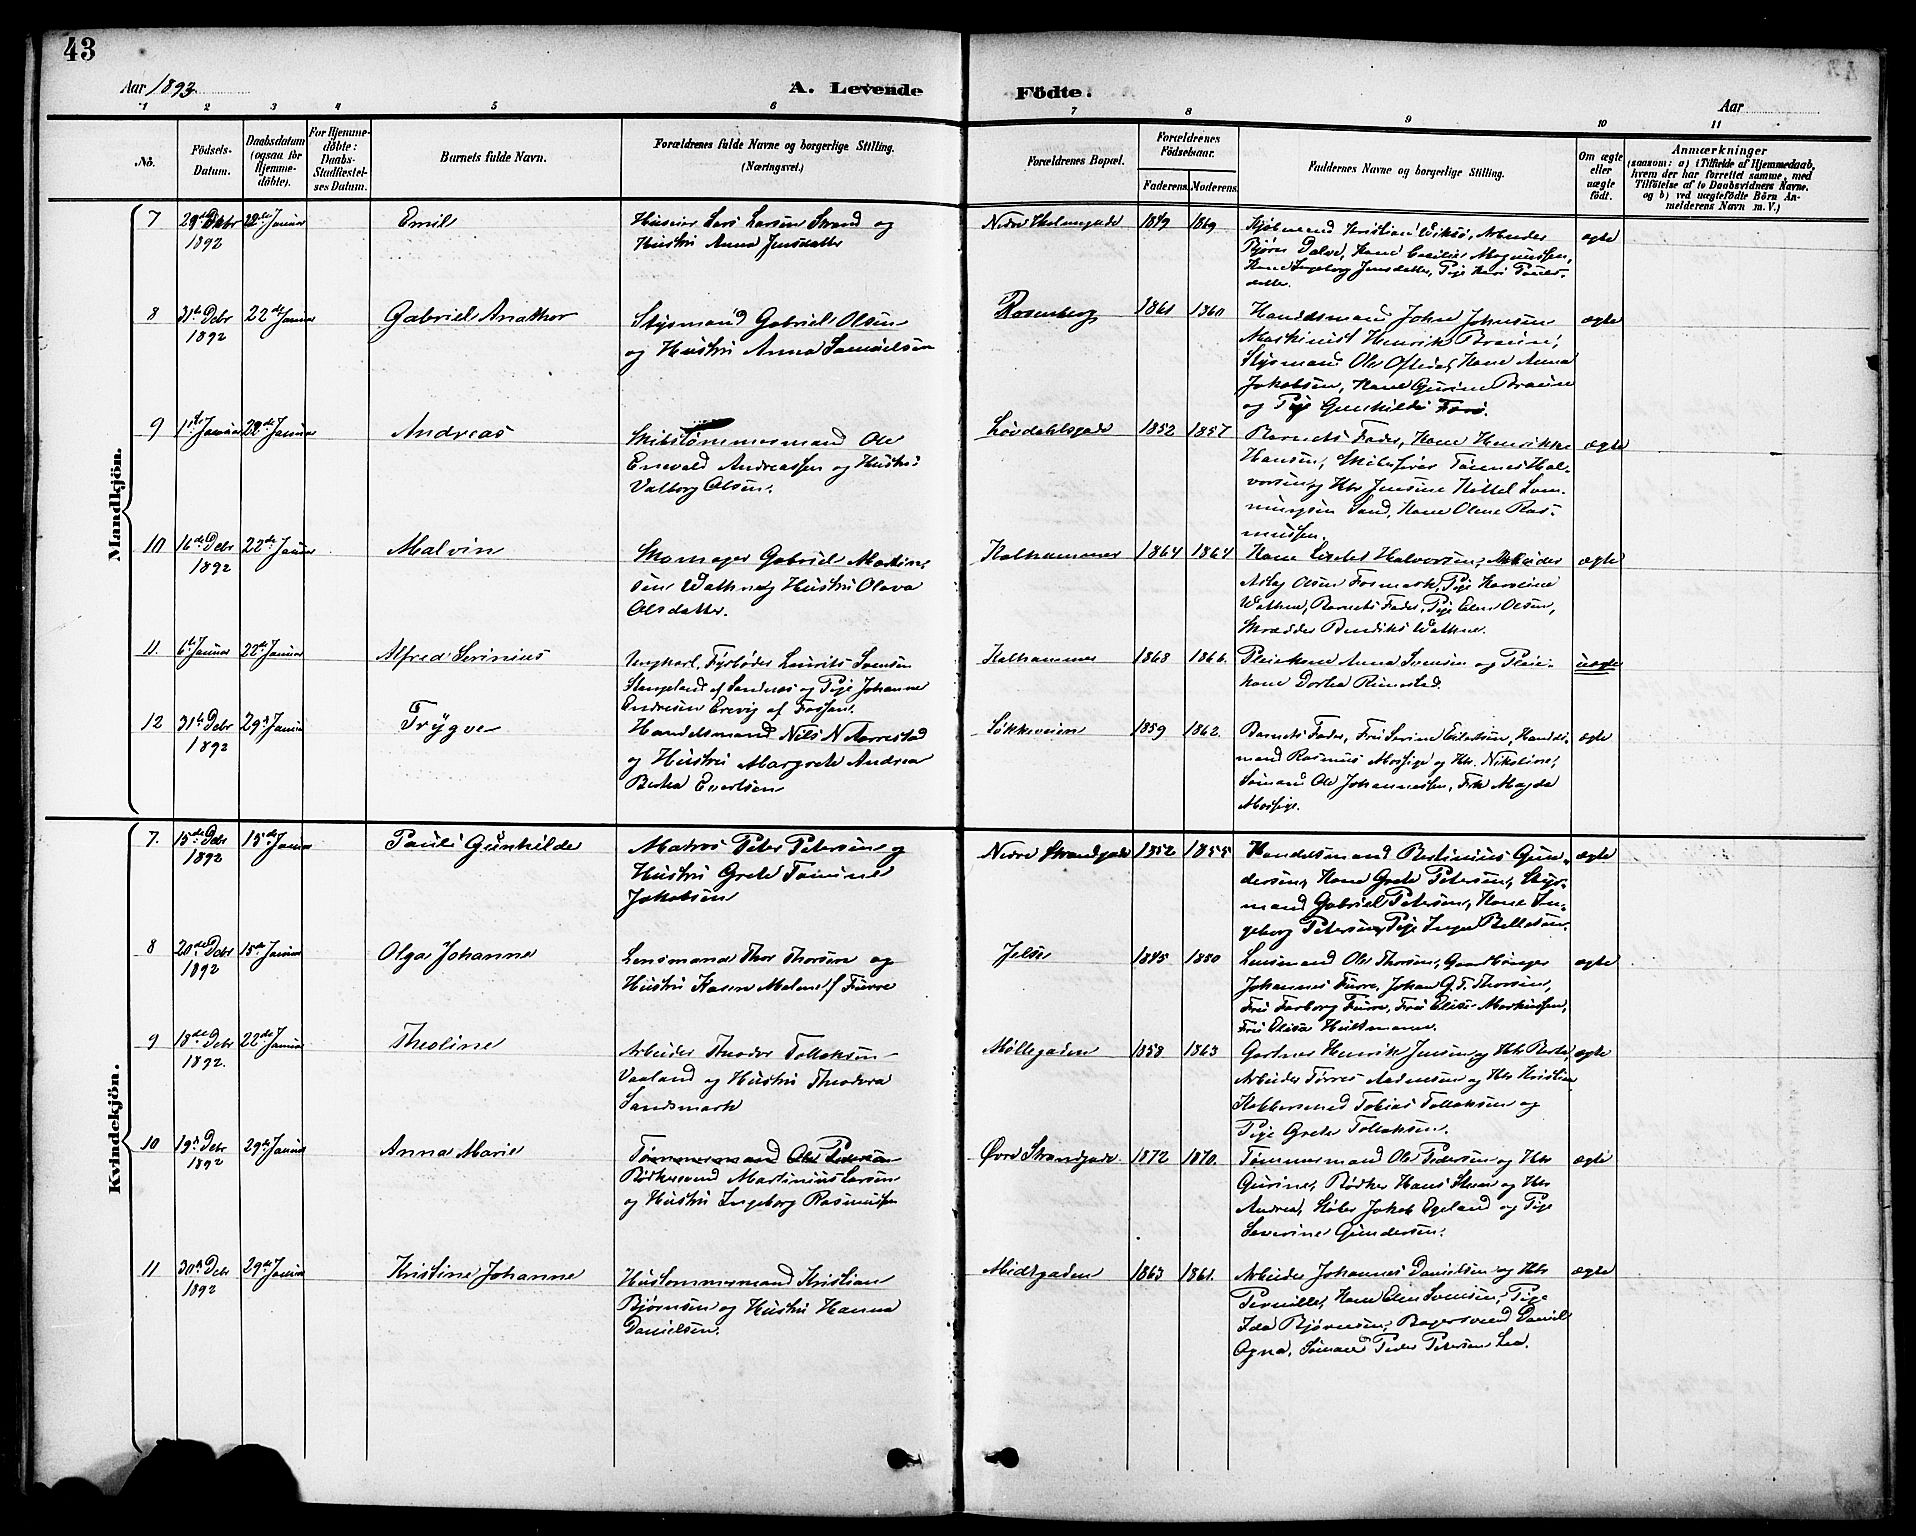 43
Aar 1893
A. Levende Födte.
Aar
1 2 3 4 5 6 7 8 9 10 11
No.
Födsels-Datum.
Daabsdatum (ogsaa for Hjemme-döbte).
For Hjemme-döbte: Daabs-Stadfæstel-ses Datum.
Barnets fulde Navn.
Forældrenes fulde Navne og borgerlige Stilling.
(Næringsvei.)
Forældrenes Bopæl.
Forældrenes Födselsaar.
Faderens. Moderens.
Faddernes Navne og borgerlige Stilling.
Om ægte eller uægte födt.
Anmærkninger
(saasom: a) i Tilfælde af Hjemmedaab,
hvem der har forrettet samme, med
Tilföielse af to Daabsvidners Navne.
og b) ved uægtefödte Börn An-
melderens Navn m. V.)
Mandkjön.
7 29de Debr 1892 22de Januar Emil
Huseier Lars Larsen Strand og
Hustru Anna Jensdatter
Nedre Holmegade 1849 1869
Kjøbmand Kristian Viksø, Arbeider
Bjørn Dalve, Kone Cecilie Magnussen,
Kone Ingeborg Jensdatter, Pige Kari Pauls-
datter.
ægte
8 31te Debr 1892 22de Januar Gabriel Anathor
Styrmand Gabriel Olsen
og Hustru Anna Samuelsen
Rosenberg 1861 1860
Handelsmand John Johnsen
Maskinist Henrik Braune,
Styrmand Ole Oftedal, Kone Anna
Jakobsen, Kone Gurine Braune
og Pige Gunhilde Forø.
ægte
9 1ste Januar 22de Januar Andreas
Skibstømmermand Ole
Enevald Andreassen og Hustru
Valborg Olsen.
Løvdahlsgade 1852 1857
Barnets Fader, Kone Henrikke
Hansen, Skibsfører Tønnes Hal-
vorsen og Hbr Jensine Kittel Som-
mungsen Sand, Kone Olene Ras-
mussen.
ægte
10 16de Debr 1892 22de Januar Malvin
Skomager Gabriel Martin-
sen Wathne og Hustru Olava
Olsdatter.
Kalhammer 1864 1864
Kone Lisbet Halvorsen, Arbeider
Aslag Olsen Fosmark, Pige Karoline
Wathne, Barnets Fader, Pige Elen Olsen,
Skrædder Bendiks Wathne.
ægte
11. 6te Januar 22de Januar Alfred Serinius
Ungkarl, Fyrbøder Laurits Svensen
Stangeland af Sandnæs og Pige Johanne
Andresen Erevig af Fossan.
Kalhammer 1868 1866.
Pleiekone Anna Svensen og Pleie-
kone Dortea Rimestad.
uægte
12 31te Debr 1892 29de Januar Trygve
Handelsmand Nils N Aarrestad
og Hustru Margrete Andrea
Berta Evertsen
Løkkeveien 1859 1862.
Barnets Fader, Fru Serine Eilertsen, Handels-
mand Rasmus Mossige og Hbr. Nikoline,
Sømand Ole Johannessen, Frk Magda
Mossige.
ægte
Kvindekjön.
7. 15de Debr 1892 15de Januar Pauli Gunhilde
Matros Peter Petersen og
Hustru Grete Tomine
Jakobsen
Nedre Strandgade 1852 1855
Handelsmand Bertinius Gun-
dersen, Kone Grete Petersen, Styr-
mand Gabriel Petersen, Kone In-
geborg Petersen, Pige Inga Bellesen.
ægte
8 20de Debr 1892 15de Januar Olga Johanne
Lensmand Thor Thorsen og
Hustru Karen Malene f Furre
Jelse 1845 1850
Lensmand Ole Thorsen, Gaardbruger
Johannes Furre, Johan G. T. Thorsen,
Fru Farborg Furre, Fru Elise Markussen,
Fru Elisa Hultmann.
ægte
9 18de Debr 1892. 22de Januar Theoline
Arbeider Theodor Tollaksen
Vaaland og Hustru Theodora
Sandsmark
Møllegaden 1858 1863
Gartner Henrik Jensen og Hbr Berta,
Arbeider Tørres Aadnesen og Hbr Kristine
Kobbersmed Tobias Tollaksen og
Pige Grete Tollaksen.
ægte
10 19de Debr 1892 29de Januar Anna Marie
Tømmermand Ole Pedersen
Bødkersvend Martinius Larsen
og Hustru Ingeborg Rasmussen
Øvre Strandgade 1872 1870.
Tømmermand Ole Pedersen og Hbr
Gurine, Bødker Hans Steen og Hbr
Andrea, Støber Jakob Egeland og Pige
Severine Gundersen.
ægte
11 30te Debr 1892 29de Januar Kristine Johanne
Hustømmermand Kristian
Bjørnsen og Hustru Hanna
Danielsen.
Midtgaden 1863 1861.
Arbeider Johannes Danielsen og Hbr
Pernille, Kone Elen Svensen, Pige
Ida Bjørnsen, Bagersvend Daniel
Ogna, Sømand Peder Petersen Lea.
ægte